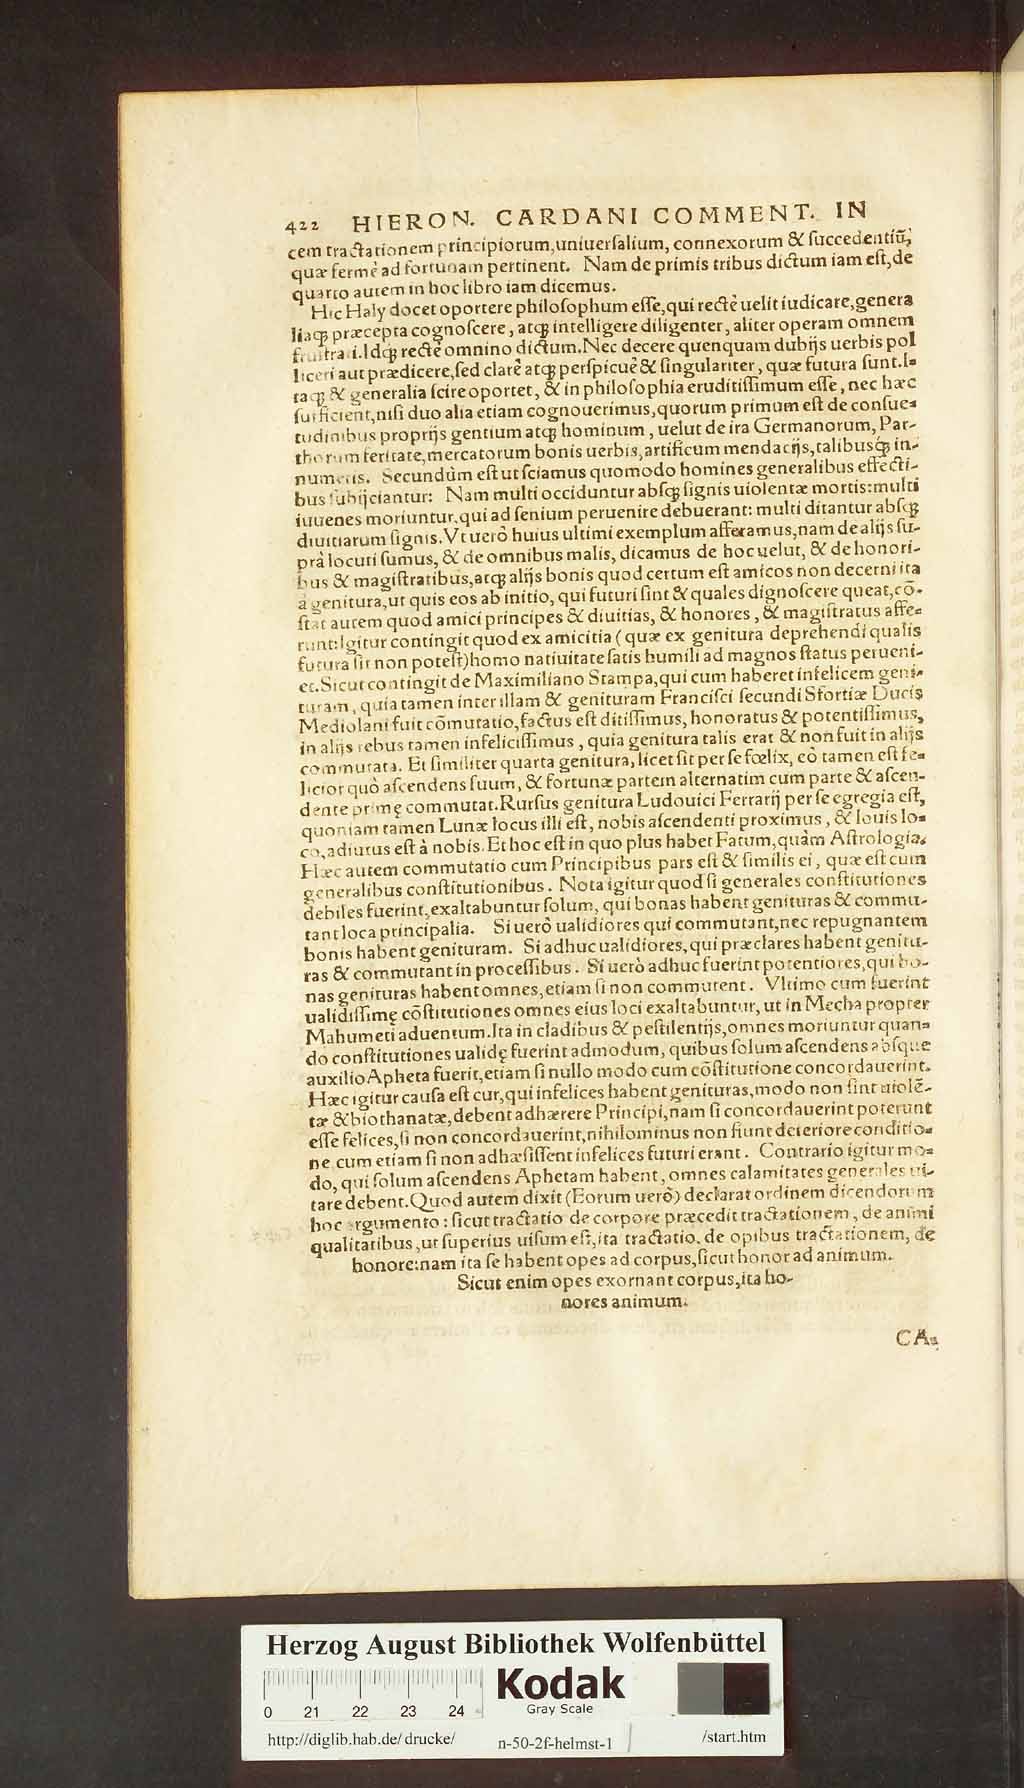 422 HIERON. CARDANI COMMENT. IN
cem tractationem principiorum, uniuerſalium, connexorum & ſuccedentiũ,
quæ fermè ad fortunam pertinent. Nam de primis tribus dictum iam eſt, de
quarto autem in hoc libro iam dicemus.
Hic Haly docet oportere philoſophum eſſe, qui rectè uelit iudicare, genera
liaqꝫ præcepta cognoſcere, atqꝫ intelligere diligenter, aliter operam omnem
fruſtrari. Idqꝫ rectè omnino dictum. Nec decere quenquam dubijs uerbis pol
liceri aut prædicere, ſed clarè atqꝫ perſpicuè & ſingulariter, quæ futura ſunt. I-
taqꝫ & generalia ſcire oportet, & in philoſophia eruditiſſimum eſſe, nec hæc
ſufficient, niſi duo alia etiam cognouerimus, quorum primum eſt de conſue-
tudinibus proprijs gentium atqꝫ hominum, uelut de ira Germanorum, Par-
thorum feritate, mercatorum bonis uerbis, artificum mendacijs, talibusqꝫ in-
numeris. Secundùm eſt ut ſciamus quomodo homines generalibus effecti-
bus ſubijciantur: Nam multi occiduntur abſqꝫ ſignis uiolentæ mortis: multi
iuuenes moriuntur, qui ad ſenium peruenire debuerant: multi ditantur abſqꝫ
diuitiarum ſignis. Vt uerò huius ultimi exemplum afferamus, nam de alijs ſu-
prà locuti ſumus, & de omnibus malis, dicamus de hoc uelut, & de honori-
bus & magiſtratibus, atqꝫ alijs bonis quod certum eſt amicos non decerni ita
à genitura, ut quis eos ab initio, qui futuri ſint & quales dignoſcere queat, cõ-
ſtat autem quod amici principes & diuitias, & honores, & magiſtratus affe-
runt: Igitur contingit quod ex amicitia (quæ ex genitura deprehendi qualis
futura ſit non poteſt) homo natiuitate ſatis humili ad magnos ſtatus perueni-
et. Sicut contingit de Maximiliano Stampa, qui cum haberet infelicem geni-
turam, quia tamen inter illam & genituram Franciſci ſecundi Sfortiæ Ducis
Mediolani fuit cõmutatio, factus eſt ditiſſimus, honoratus & potentiſſimus,
in alijs rebus tamen infeliciſſimus, quia genitura talis erat & non fuit in alijs
commutata. Et ſimiliter quarta genitura, licet ſit per ſe fœlix, eò tamen eſt fe-
licior quò aſcendens ſuum, & fortunæ partem alternatim cum parte & aſcen-
dente primę commutat. Rurſus genitura Ludouici Ferrarij per ſe egregia eſt,
quoniam tamen Lunæ locus illi eſt, nobis aſcendenti proximus, & Iouis lo-
co, adiutus eſt à nobis. Et hoc eſt in quo plus habet Fatum, quàm Aſtrologia.
Hæc autem commutatio cum Principibus pars eſt & ſimilis ei, quæ eſt cum
generalibus conſtitutionibus. Nota igitur quod ſi generales conſtitutiones
debiles fuerint, exaltabuntur ſolum, qui bonas habent genituras & commu-
tant loca principalia. Si uerò ualidiores qui commutant, nec repugnantem
bonis habent genituram. Si adhuc ualidiores, qui præclares habent genitu-
ras & commutant in proceſſibus. Si uerò adhuc fuerint potentiores, qui bo-
nas genituras habent omnes, etiam ſi non commutent. Vltimo cum fuerint
ualidiſſimę cõſtitutiones omnes eius loci exaltabuntur, ut in Mecha propter
Mahumeti aduentum. Ita in cladibus & peſtilentijs, omnes moriuntur quan-
do conſtitutiones ualidę fuerint admodum, quibus ſolum aſcendens abſque
auxilio Apheta fuerit, etiam ſi nullo modo cum cõſtitutione concordauerint.
Hæc igitur cauſa eſt cur, qui infelices habent genituras, modo non ſint uiolẽ-
tæ & biothanatæ, debent adhærere Principi, nam ſi concordauerint poterunt
eſſe felices, ſi non concordauerint, nihilominus non fiunt deteriore conditio-
ne, cum etiam ſi non adhæſiſſent infelices futuri erant. Contrario igitur mo-
do, qui ſolum aſcendens Aphetam habent, omnes calamitates generales ui-
tare debent. Quod autem dixit (Eorum uerò) declarat ordinem dicendorum
hoc argumento: ſicut tractatio de corpore præcedit tractationem, de animi
qualitatibus, ut ſuperius uiſum eſt, ita tractatio, de opibus tractationem, de
honore: nam ita ſe habent opes ad corpus, ſicut honor ad animum.
Sicut enim opes exornant corpus, ita ho-
nores animum.
CA-
Herzog August Bibliothek Wolfenbüttel
Kodak
Gray Scale
0 21 22 23 24
http://diglib.hab.de/drucke/ n-50-2f-helmst-1 /start.htm